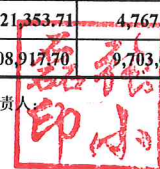 21,353.71 4,767
08,917.70 9,703,
责人：
张小
印